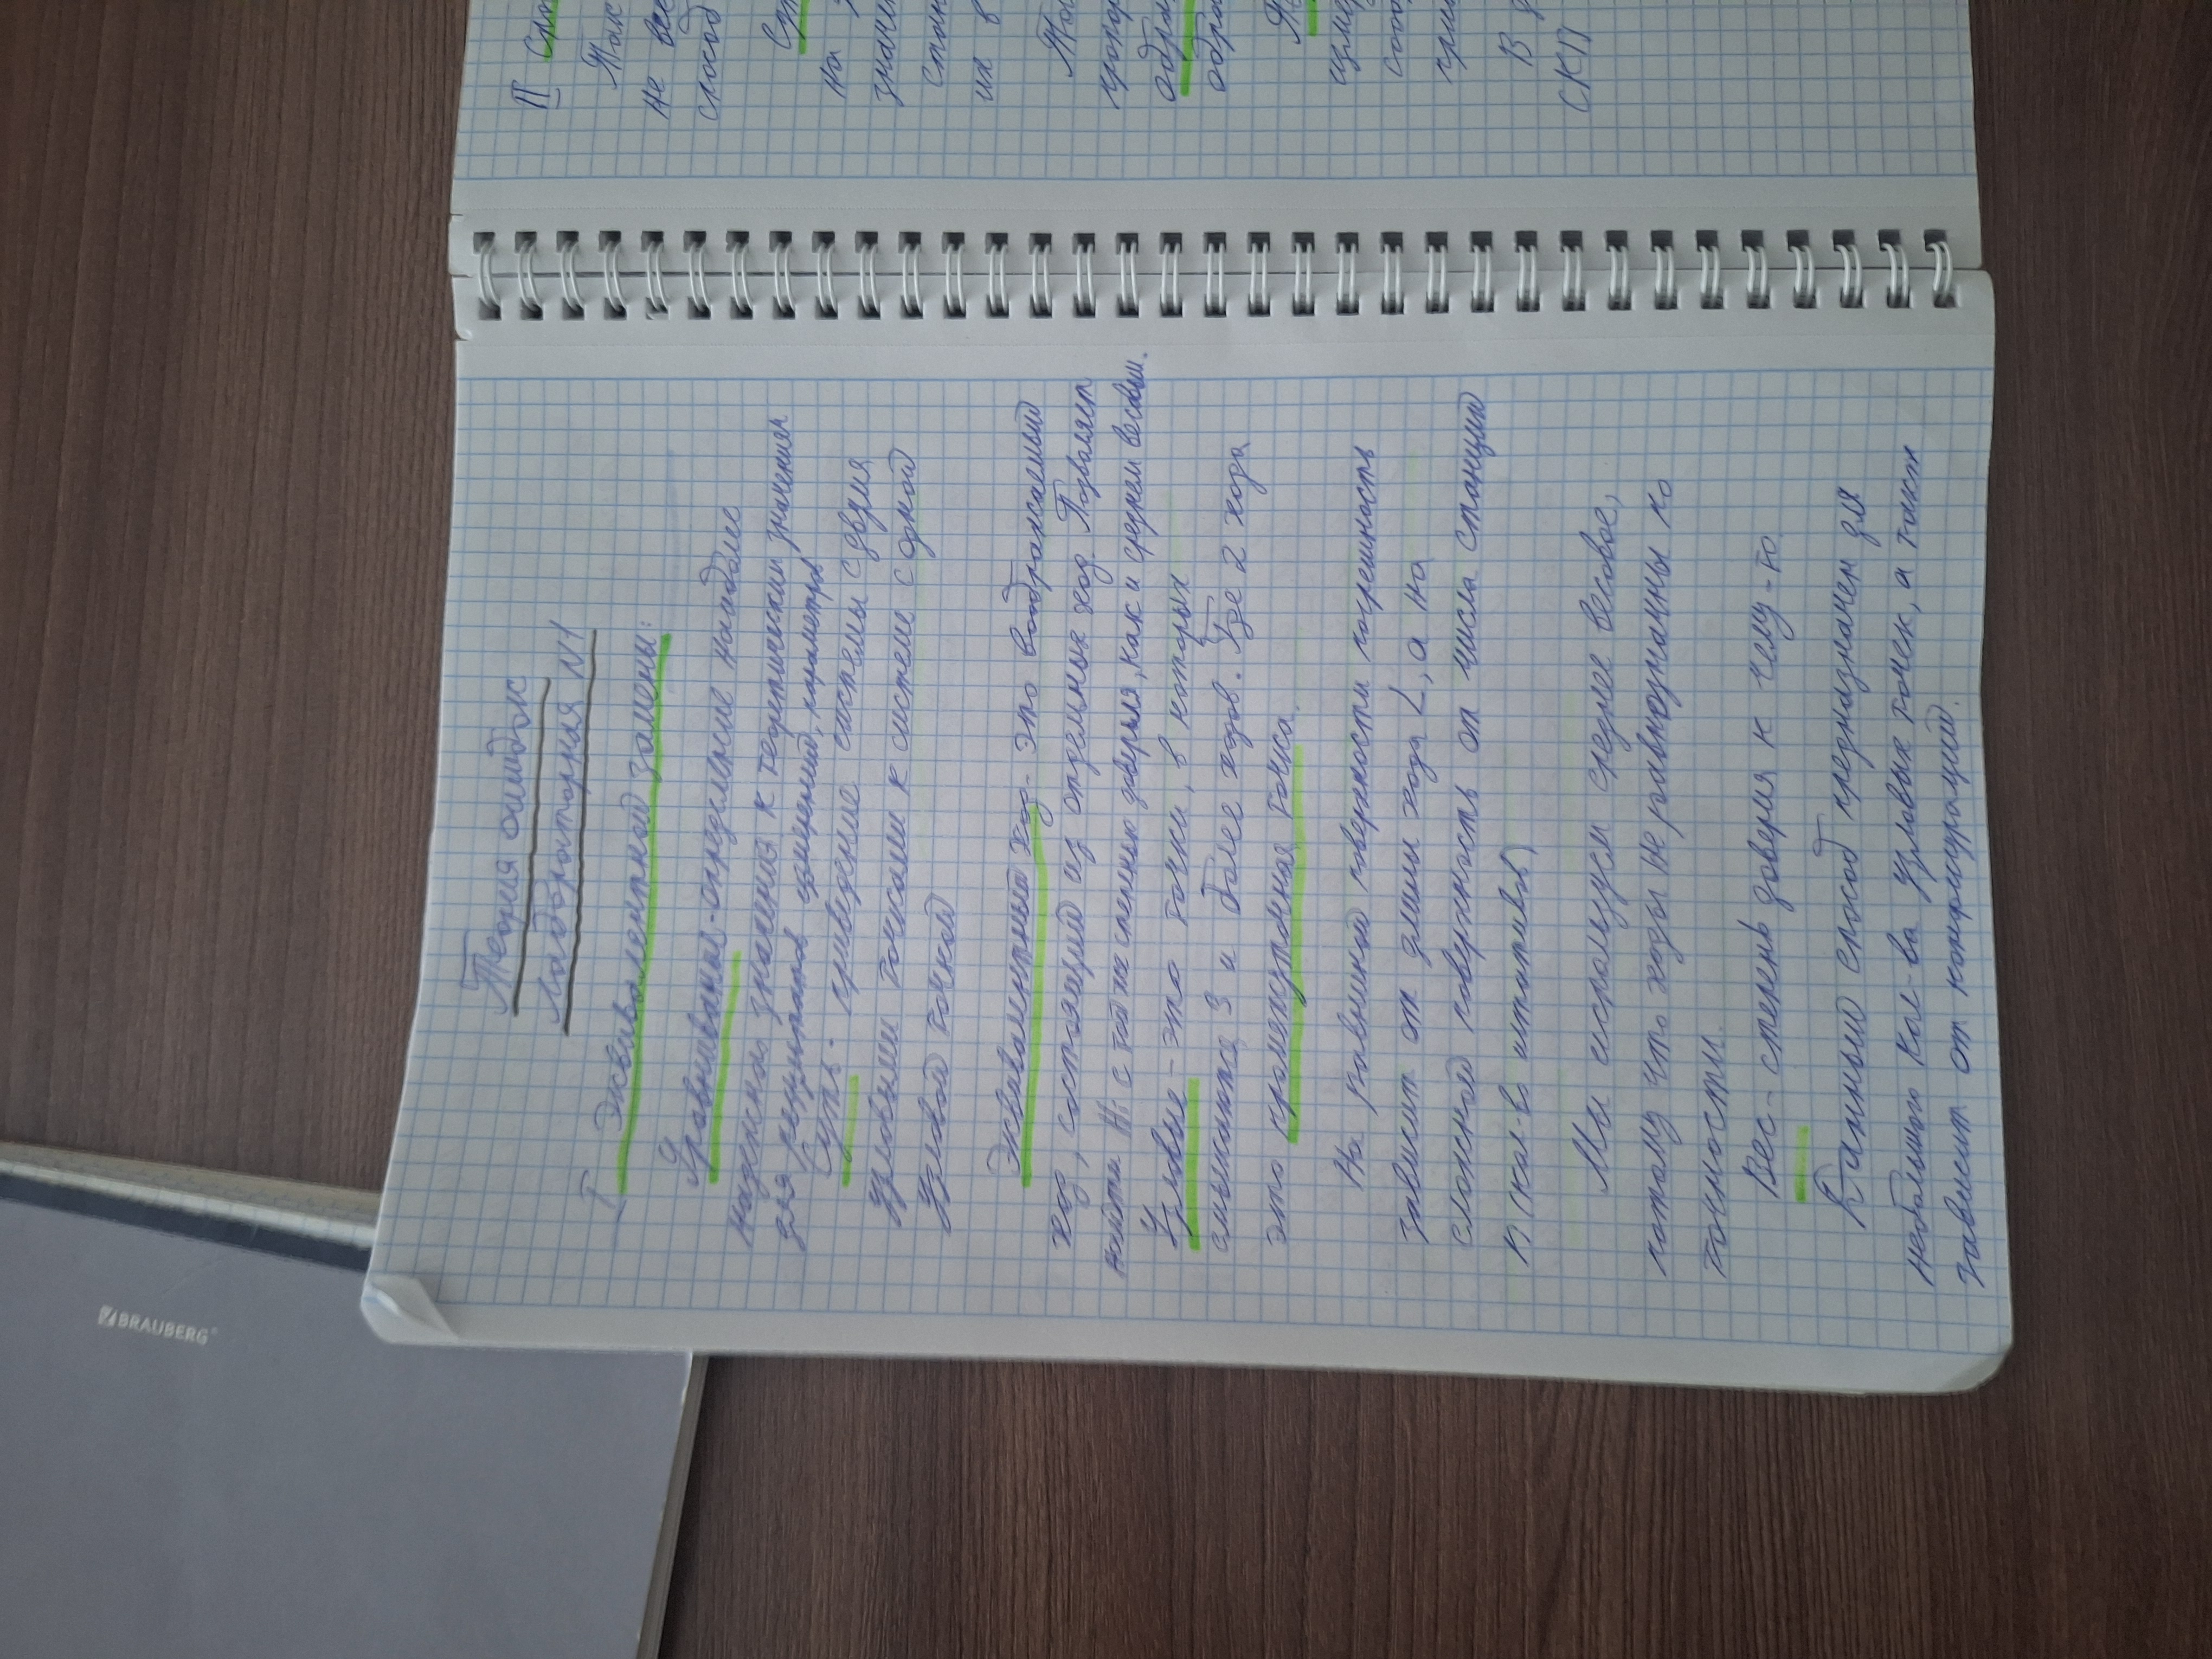 Теория ошибок
Лабораторная №1
I Эквивалентной замены:
Уравнивание - определение наиболее
надежного значения к теоретическим значениям
для результатов измерений, параметров
Суть - приведение системы с двумя
узловыми точками к системе с одной
узловой точкой
Эквивалентный ход - это воображаемый
ход, состоящий из отдельных ход. Позволяет
найти Hi с той же степенью доверия, как и среднем весовым.
Узловые - это точки, в которых
смыкаются 3 и более ходов. Где 2 хода
это промежуточная точка.
На равнинной поверхности погрешность
зависит от длины хода L, а на
сложной поверхность от числа станций
n (кол-в штативов)
Мы используем среднее весовое,
потому что ходы не равнозначны по
точности.
Вес - степень доверия к чему-то.
Данный способ предназначен для
небольшого кол-ва узловых точек, а также
зависит от конфигураций.
II Спо
Так
не все
способ
Су
на
значи
их в
обра
СКП
BRAUBERG